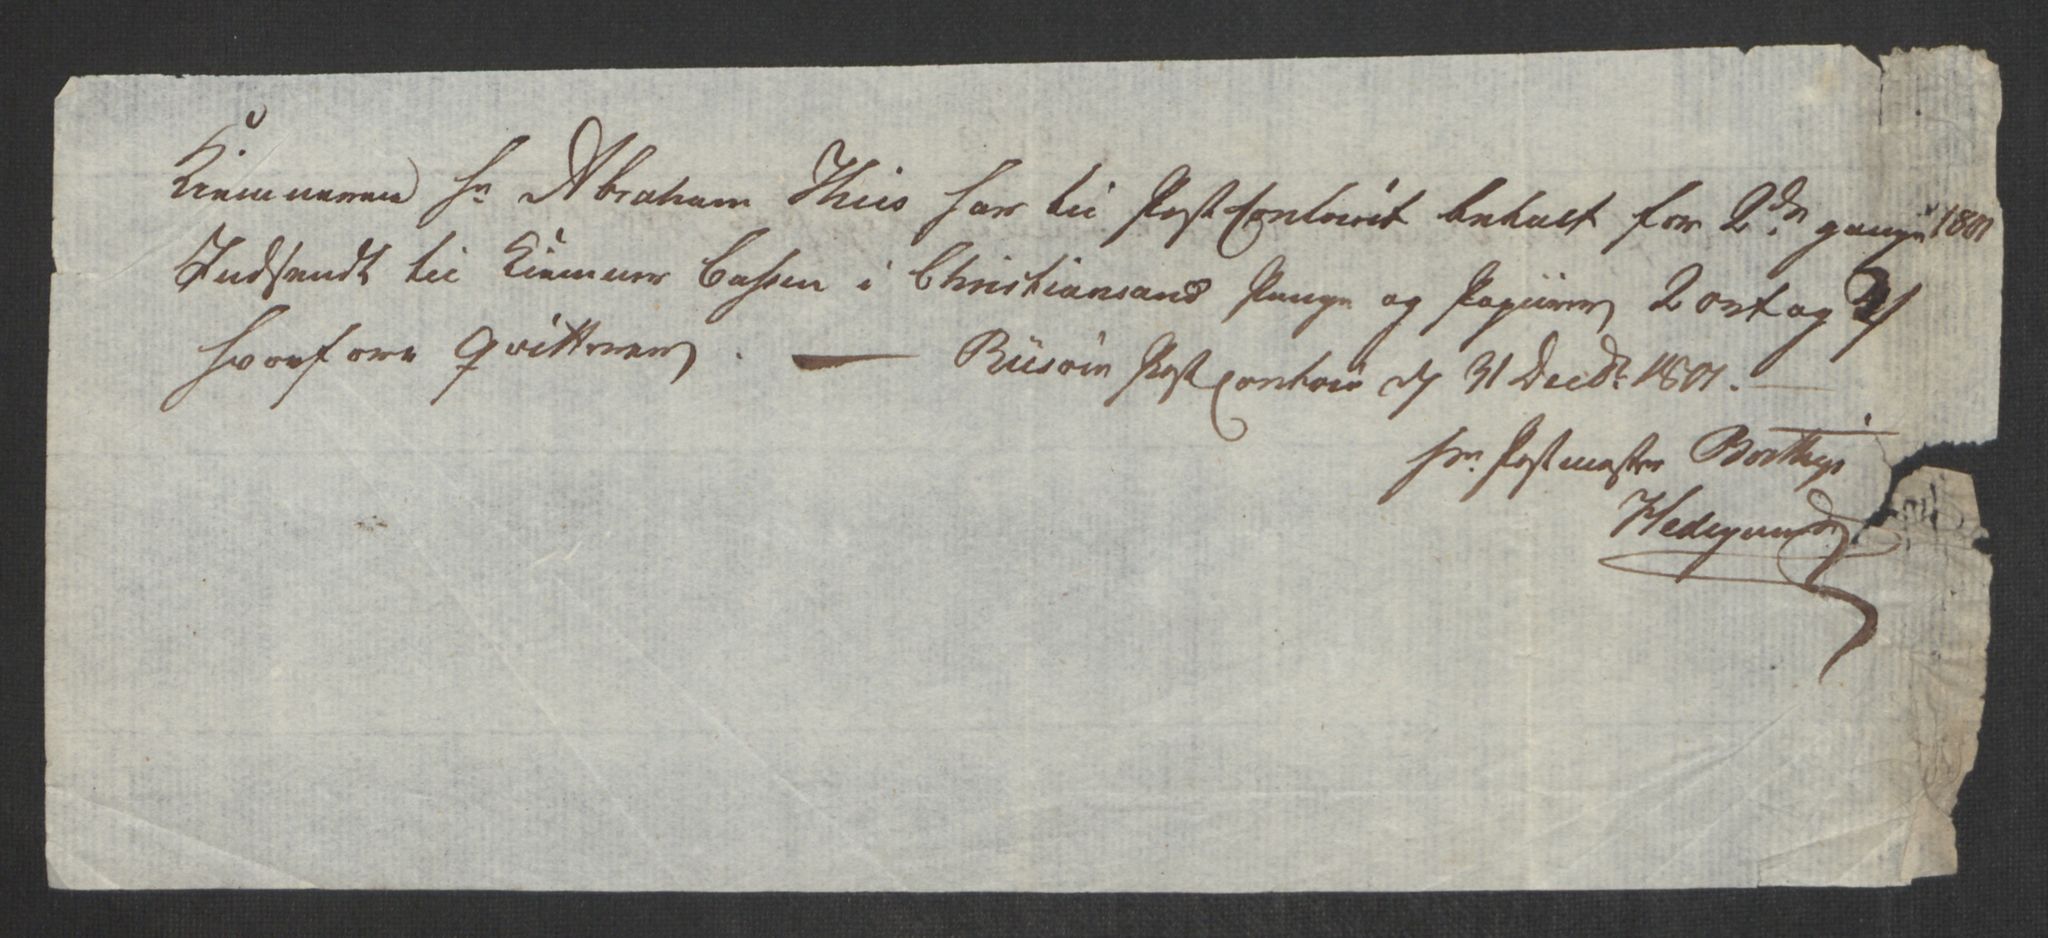 Kiemneren Hr Abraham Thiis har til Post Contoiret betalt for 2de gange 1801
Indsendt til Kiemner Cassen i Christiansand Penge og Papiirer 2 ort og
hvorfore qvitterer. — Riisøer Post Contoir d 31 Decbr 1801. —
for Postmester
Hedegaard